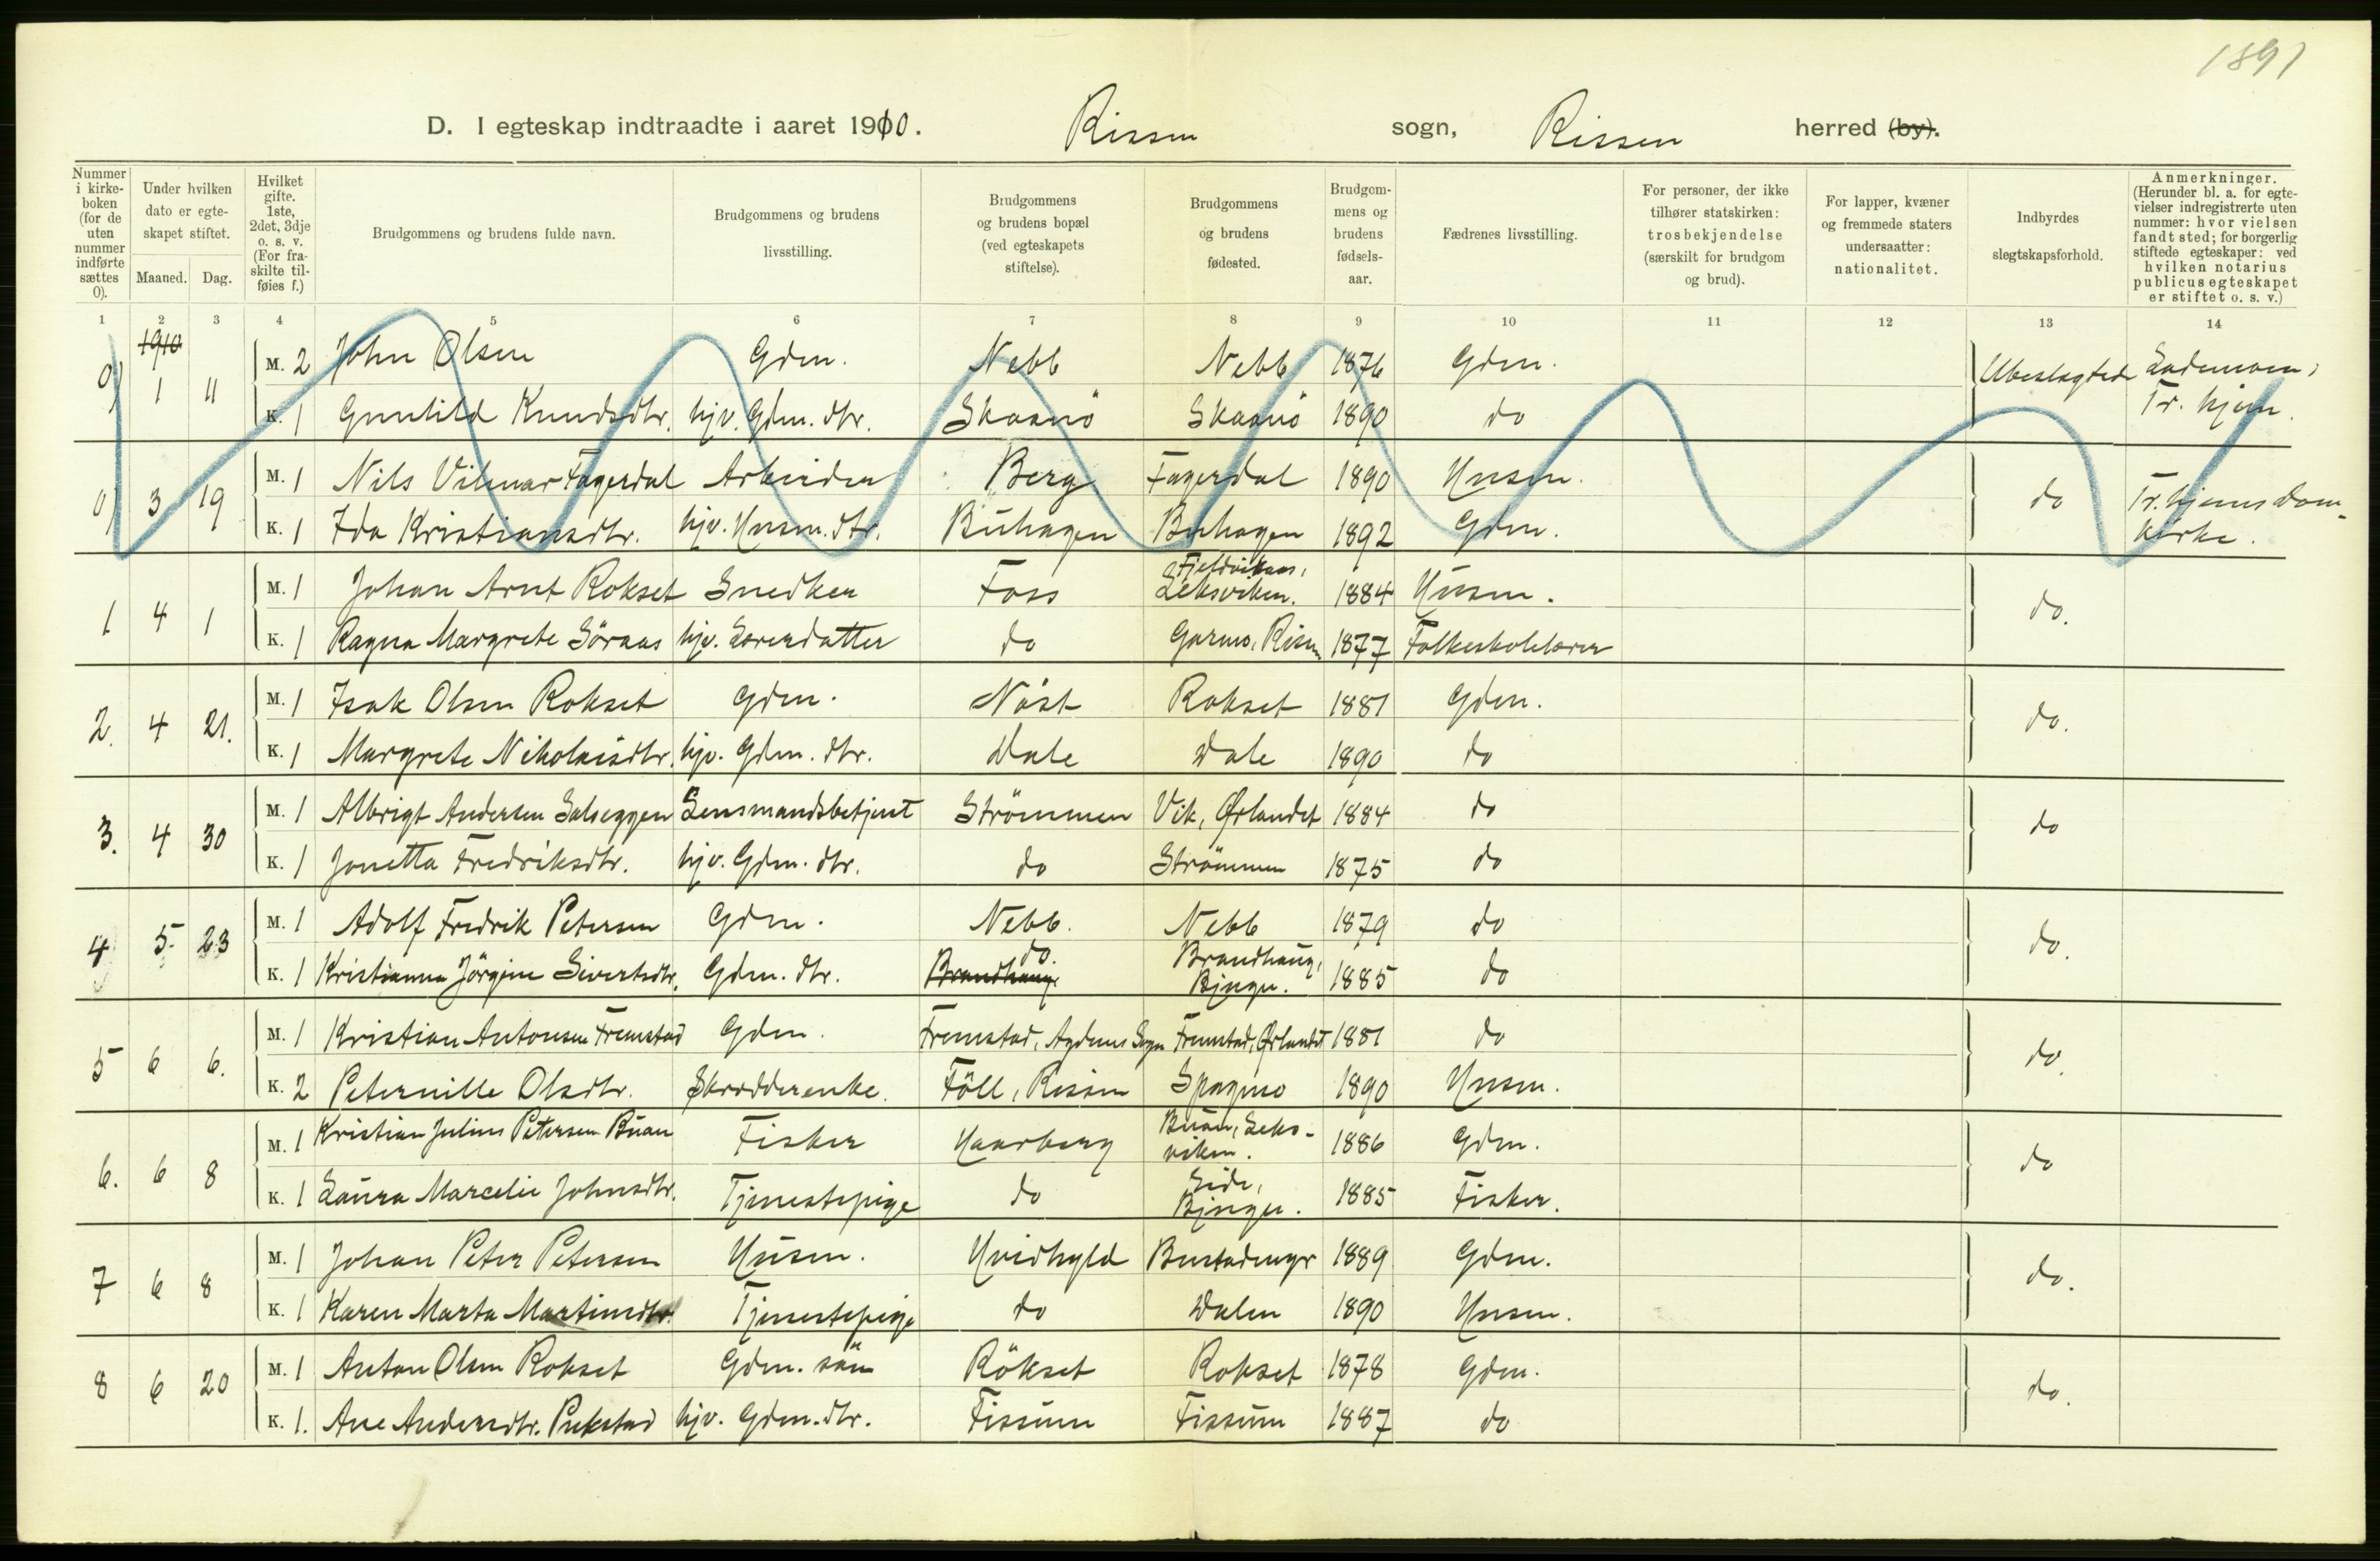 1891
D. I egteskap indtraadte i aaret 1910. Rissen sogn, Rissen herred (by).
Nummer i kirkeboken (for de uten nummer indførte sættes 0).
Under hvilken dato er egteskapet stiftet.
Maaned. Dag.
Hvilket gifte. 1ste, 2det, 3dje o. s. v. (For fraskilte tilføies f.)
Brudgommens og brudens fulde navn.
Brudgommens og brudens livsstilling.
Brudgommens og brudens bopæl (ved egteskapets stiftelse).
Brudgommens og brudens fødested.
Brudgommens og brudens fødselsaar.
Fædrenes livsstilling.
For personer, der ikke tilhører statskirken: trosbekjendelse (særskilt for brudgom og brud).
For lapper, kvæner og fremmede staters undersaatter: nationalitet.
Indbyrdes slegtskapsforhold.
Anmerkninger. (Herunder bl. a. for egtevielser indregistrerte uten nummer: hvor vielsen fandt sted; for borgerlig stiftede egteskaper: ved hvilken notarius publicus egteskapet er stiftet o. s. v.)
1 2 3 4 5 6 7 8 9 10 11 12 13 14
1910
0) 1 11 M. 2 John Olsen Gdm. Nebb Nebb 1876 Gdm. Ubeslægtede Lademoen,
K. 1 Gunhild Knudsdtr. hjv. Gdm. dtr. Skaanö Skaanö 1890 do Tr. hjem.
0) 3 19 M. 1 Nils Vilmar Fagerdal Arbeider Berg Fagerdal 1890 Husm. do Tr. hjems Dom-
K. 1 Ida Kristiansdtr. hjv. Husm. dtr. Buhagen Buhagen 1892 Gdm. kirke.
1 4 1 M. 1 Johan Arnt Rokset Snedker Foss Leksviken. 1884 Husm. do.
K. 1 Ragna Margrete Söraas hjv. Lærerdatter do Rissen 1877 Folkeskolelærer
2. 4 21. M. 1 Isak Olsen Rokset Gdm. Nöst Rokset 1881 Gdm. do.
K. 1 Margrete Nikolaisdtr. hjv. Gdm. dtr. Dale Dale 1890 do
3. 4 30 M. 1 Albrigt Andersen Salseggen Lensmandsbetjent Strömmen Vik, Ørlandet 1884 do do
K. 1 Jonetta Fredriksdtr. hjv. Gdm. dtr. do Strömmen 1875 do
4 5 23 M. 1 Adolf Fredrik Petersen Gdm. Nebb. Nebb 1879 do do.
K. 1 Kristianna Jörgine Sivertsdtr. Gdm. dtr. Brandhaug do. Brandhaug, Bjugn. 1885 do
5 6 6. M. 1 Kristian Antonsen Fremstad Gdm. Fremstad, Agdenes Sogn Fremstad, Ørlandet 1881 do do.
K. 2 Peternille Olsdtr. Skrædderenke. Föll, Rissen 1890 Husm.
6. 6 8 M. 1 Kristian Julius Petersen Buan Fisker Haarberg Buan, Leksviken. 1886 Gdm. do
K. 1 Laura Marcelie Johnsdtr. Tjenestepige do Eide, Bjugn. 1885 Fisker.
7 6 8 M. 1 Johan Peter Petersen Husm. Hvidhyld 1889 Gdm. do.
K. 1 Karen Marta Martinsdtr. Tjenestepige do Dalen 1890 Husm.
8 6 20 M. 1 Anton Olsen Rokset Gdm. sön Rökset Rokset 1878 Gdm. do.
K. 1. Ane Andersdtr. hjv. Gdm. dtr. Fissum Fissum 1887 do